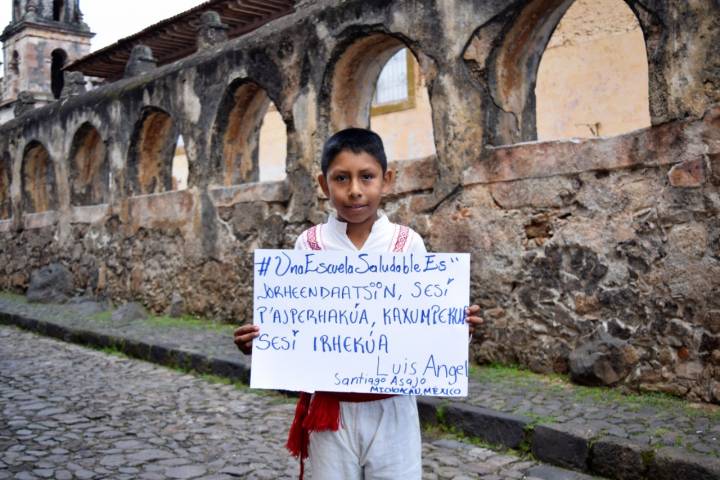 #"UnaEscuelaSaludableEs"
JORHEENDAATSÏÏN, SESÍ
P'AJPERHAKÚA, KAXUMPEKUA
SESÍ IRHEKÚA
Luis Angel
Santiago Asajo
MICHOACÁN, MÉXICO